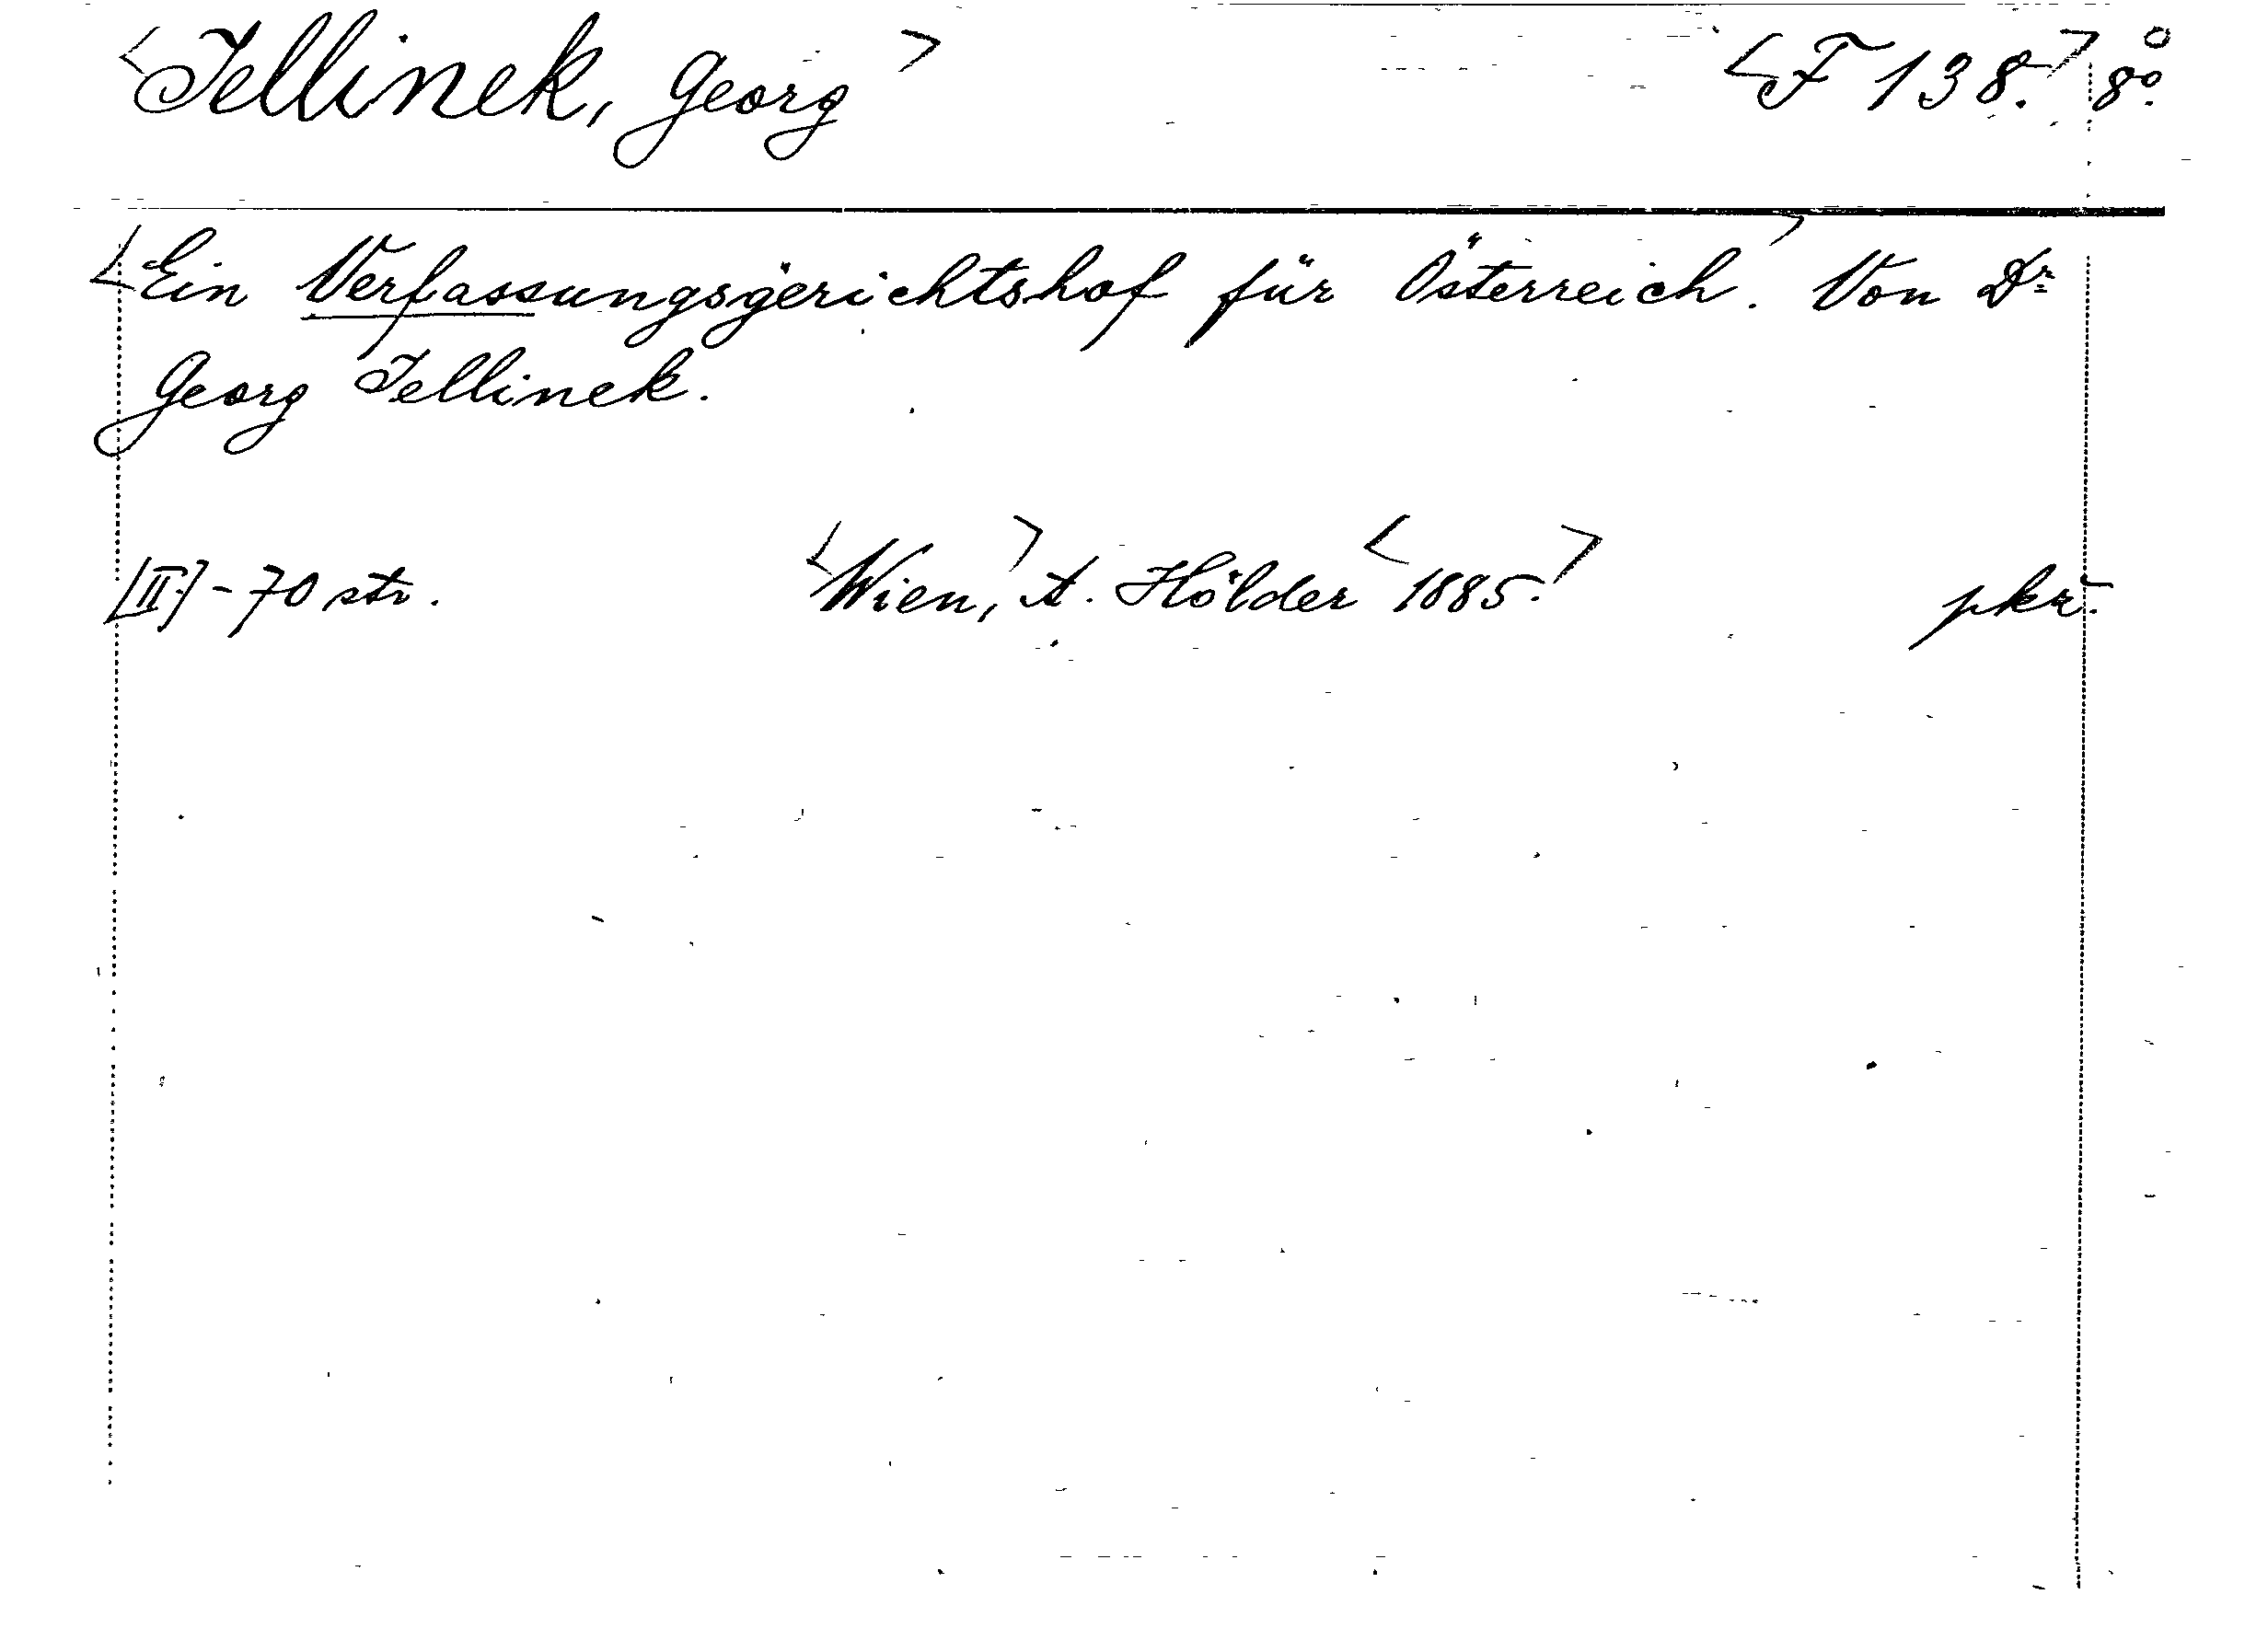 <Jellinek, Georg> <F 138.> 8º.
<Ein Verfassungsgerichtshof für Österreich.> Von Dr
Georg Jellinek.
[II] - 70 str. <Wien,> A. Hölder <1885.> pkr.